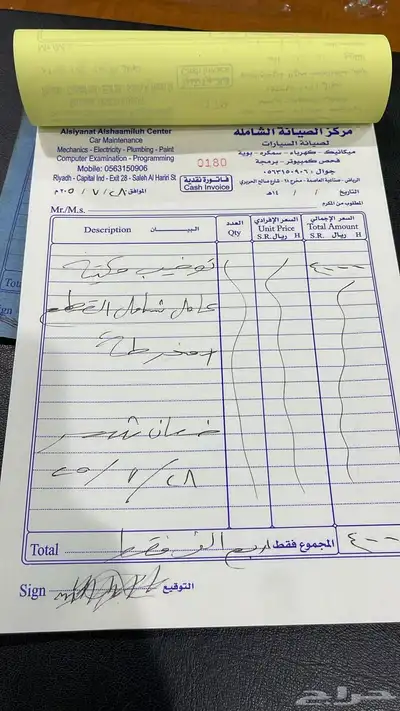 Alsiyanat Alshaamiluh Center
Car Maintenance
Mechanics - Electricity - Plumbing - Paint
Computer Examination - Programming
Mobile: 0563150906
Riyadh - Capital Ind - Exit 28 - Saleh Al Hariri St
مركز الصيانة الشاملة
لصيانة السيارات
ميكانيك - كهرباء - سمكره - بوية
فحص كمبيوتر - برمجة
جوال : ٠٥٦٣١٥٠٩٠٦
الرياض - صناعية العاصمة - مخرج ٢٨ - شارع صالح الحريري
0180
فاتورة نقدية
Cash Invoice
التاريخ / / ١٤هـ
الموافق ٢٨ / ٧ / ٢٠٢٥م
Mr./M/s.
المطلوب من المكرم
Description البيــــان
العدد
Qty
السعر الإفرادي
Unit Price
S.R. ريال H
السعر الإجمالي
Total Amount
S.R. ريال H
توضيب مكينة
٤٠٠٠
عامل شامل القطع
+ مخرطة
ضمان شهر
٢٨ / ٧ / ٢٥
Total
المجموع فقط اربع الف فقط
٤٠٠٠
Sign
التوقيع
حراج